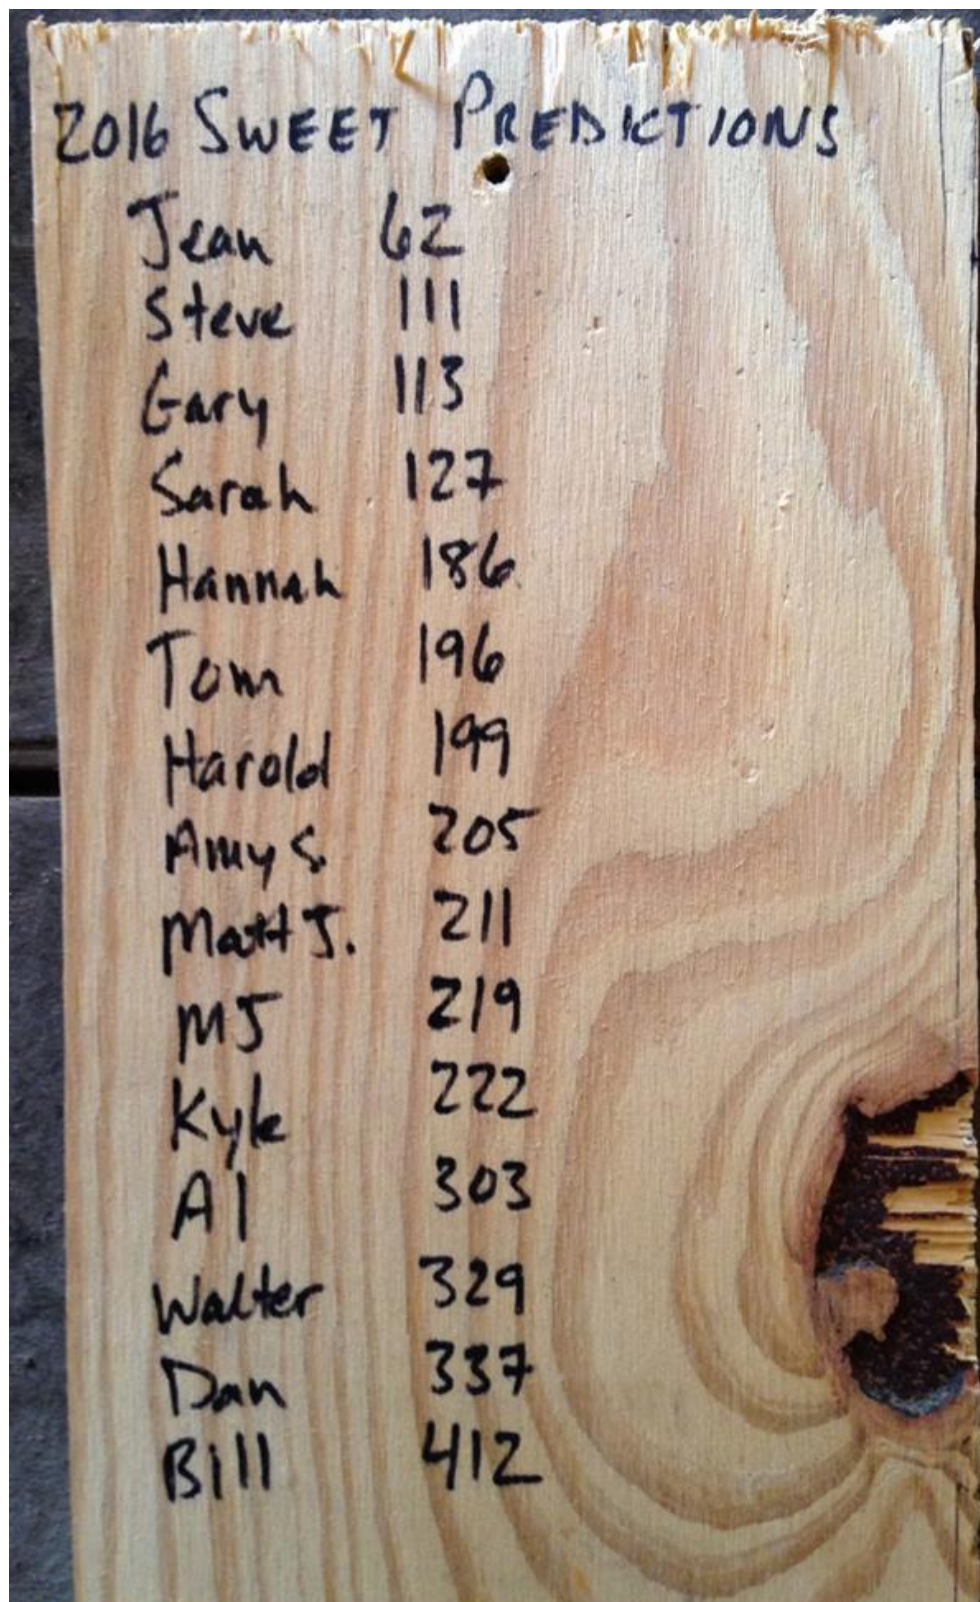 2016 SWEET PREDICTIONS
Jean 62
Steve 111
Gary 113
Sarah 127
Hannah 186
Tom 196
Harold 199
Amy S. 205
Matt J. 211
MJ 219
Kyle 222
Al 303
Walter 329
Dan 337
Bill 412